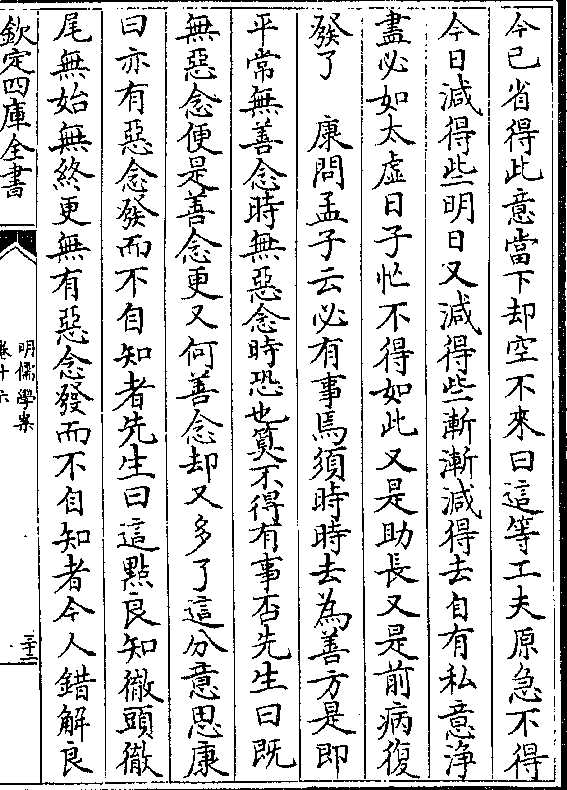 今已省得此意當下却空不來曰這等工夫原急不得
今日減得些明日又減得些漸漸減得去自有私意淨
盡必如太虚日子忙不得如此又是助長又是前病復
發了　康問孟子云必有事焉須時時去為善方是即
平常無善念時無惡念時恐也算不得有事否先生曰既
無惡念便是善念更又何善念却又多了這分意思康
曰亦有惡念發而不自知者先生曰這點良知徹頭徹
尾無始無終更無有惡念發而不自知者今人錯解良
欽定四庫全書
明儒學案
卷十六
三十二